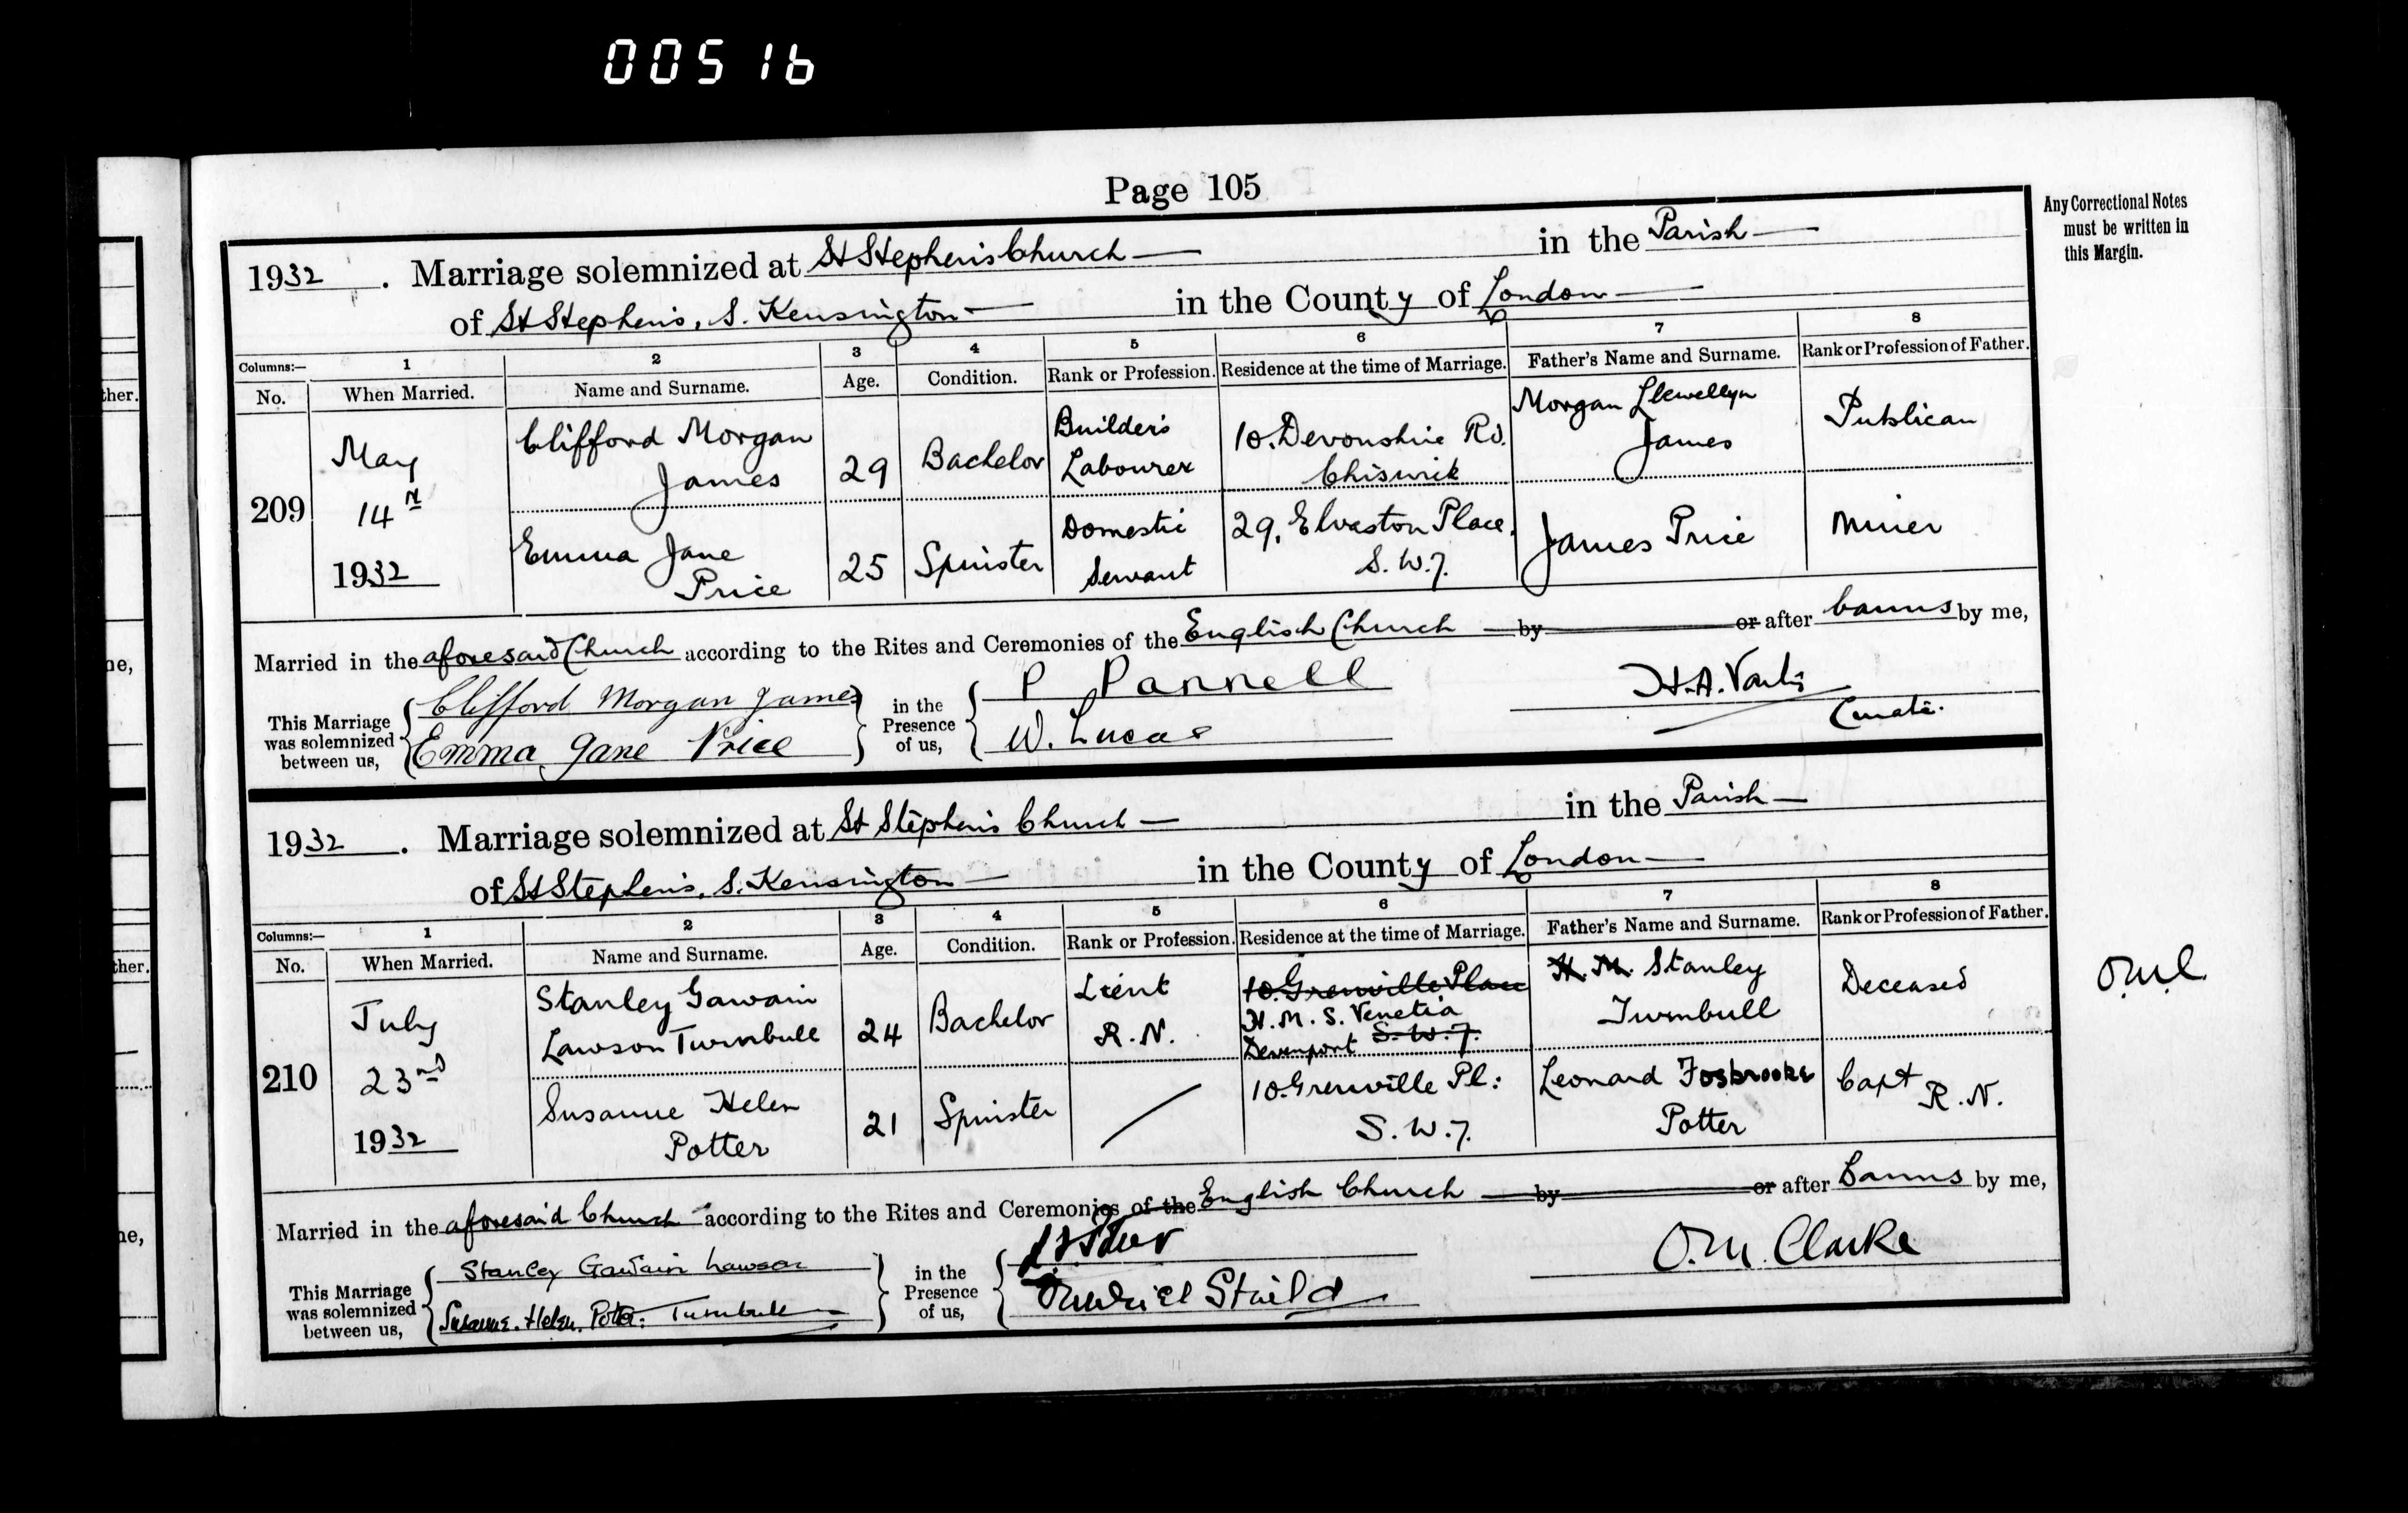 00516
Page 105
Any Correctional Notes
must be written in
this Margin.
1932. Marriage solemnized at St Stephen's Church in the Parish
of St Stephen's, S. Kensington in the County of London
Columns:— 1 2 3 4 5 6 7 8
No. When Married. Name and Surname. Age. Condition. Rank or Profession. Residence at the time of Marriage. Father's Name and Surname. Rank or Profession of Father.
209 May 14th 1932
Clifford Morgan James 29 Bachelor Builder's Labourer 10. Devonshire Rd. Chiswick Morgan Llewellyn James Publican
Emma Jane Price 25 Spinster Domestic Servant 29, Elvaston Place, S.W.7. James Price Miner
Married in the aforesaid Church according to the Rites and Ceremonies of the English Church by or after banns by me,
This Marriage was solemnized between us,
Clifford Morgan James
Emma Jane Price
in the Presence of us,
P Pannell
W. Lucas
H.A.
Curate.
1932. Marriage solemnized at St Stephen's Church in the Parish
of St Stephen's, S. Kensington in the County of London
Columns:— 1 2 3 4 5 6 7 8
No. When Married. Name and Surname. Age. Condition. Rank or Profession. Residence at the time of Marriage. Father's Name and Surname. Rank or Profession of Father.
210 July 23rd 1932
Stanley Gawain Lawson Turnbull 24 Bachelor Lieut R.N. 10. Grenville Place H.M.S. Venetia Devenport S.W.7. H. M. Stanley Turnbull Deceased
Susanne Helen Potter 21 Spinster 10 Grenville Pl: S.W.7. Leonard Fosbrooke Potter Capt R.N.
Married in the aforesaid Church according to the Rites and Ceremonies of the English Church by or after Banns by me,
This Marriage was solemnized between us,
Stanley Gawain Lawson
Susanne. Helen. Potter. Turnbull
in the Presence of us,
O.M. Clarke
ther.
ne,
ther.
ne,